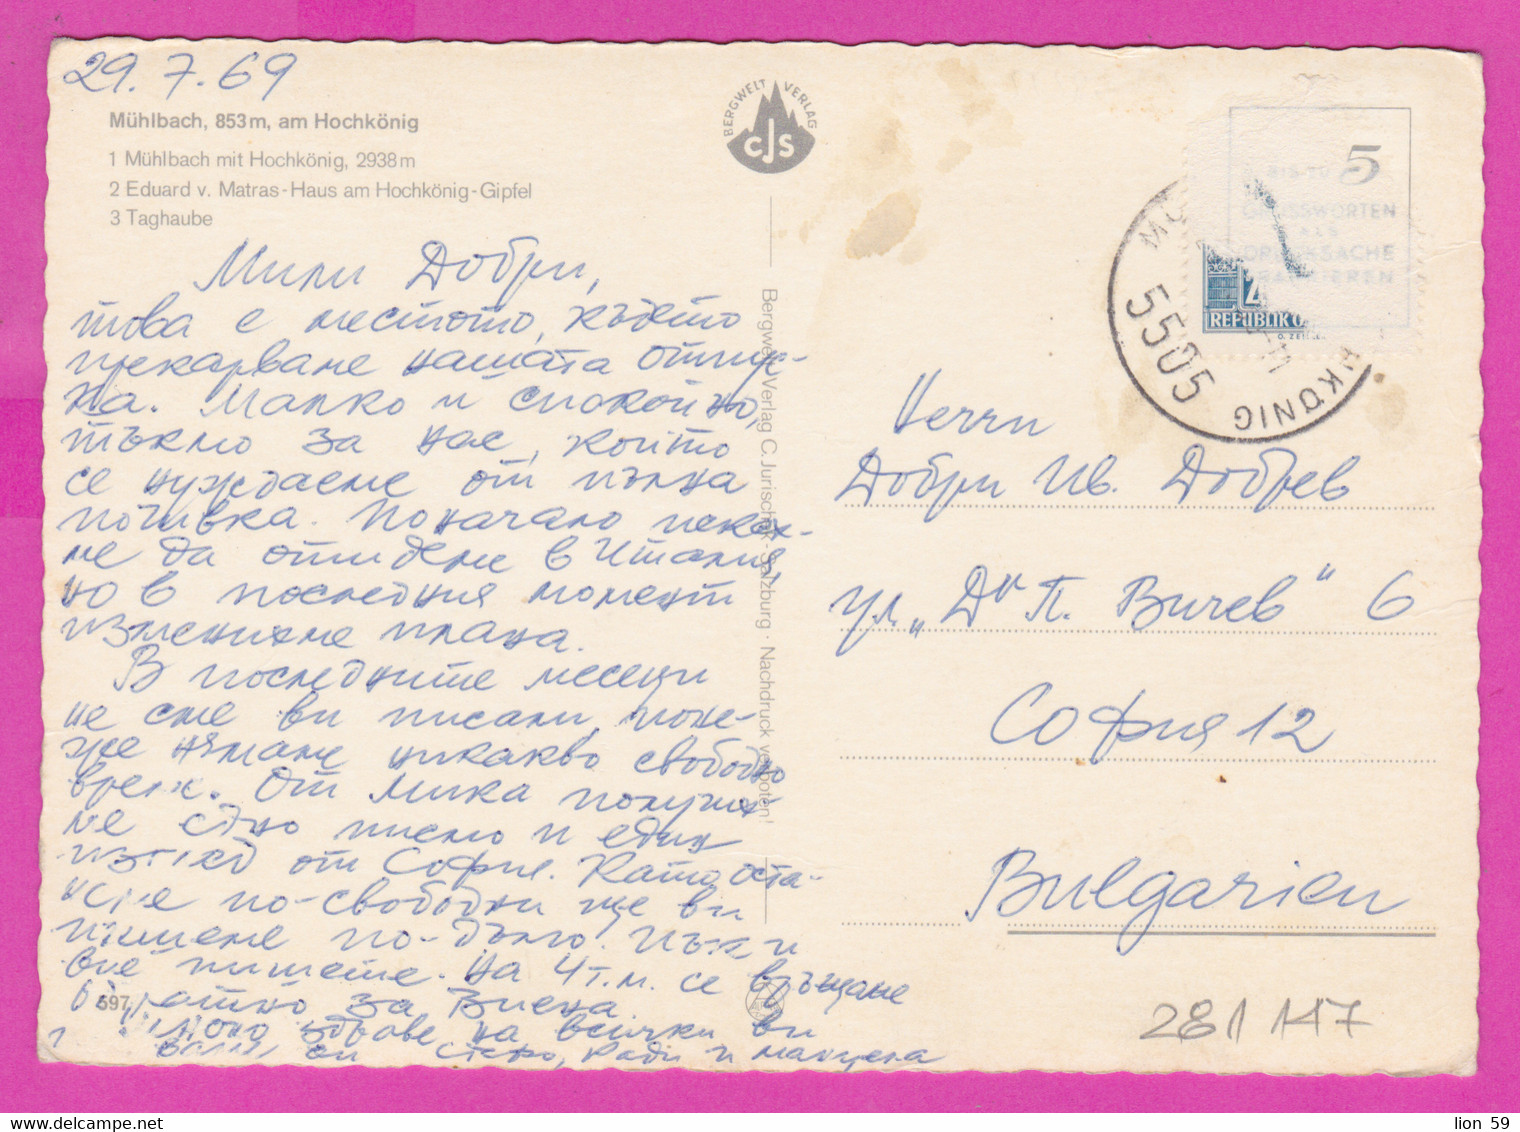 29.7.69
Mühlbach, 853m, am Hochkönig
1 Mühlbach mit Hochkönig, 2938m
2 Eduard v. Matras-Haus am Hochkönig-Gipfel
3 Taghaube
BERGWELT VERLAG
CJS
Мили Добри,
това е местото, където
прекарваме нашата отпус-
ка. Малко и спокойно,
тъкмо за нас, които
се нуждаеме от пълна
почивка. Поначало исках-
ме да отидеме в Италия,
но в последния момент
изменихме плана.
В последните месеци
не сме ви писали, поне-
же нямаме никакво свободно
време. От Мика получих-
ме едно писмо и един
изглед от София. Като оста-
неме по-свободни ще ви
пишеме по-дълго. Пък и
вие пишете. На 4 т.м. се връщаме
обратно за Виена.
Много здраве на всички ви
от и Марцела
597
Bergwelt Verlag C. Jurischek - Salzburg · Nachdruck verboten!
5
BIS ZU
GRUSSWORTEN
ALS
DRUCKSACHE
FRANKIEREN
REPUBLIK
5505
KÖNIG
Херрн
Добри Ив. Добрев
ул. „Д-р П. Вичев" 6
София 12
Bulgarien
281 147
lion 59